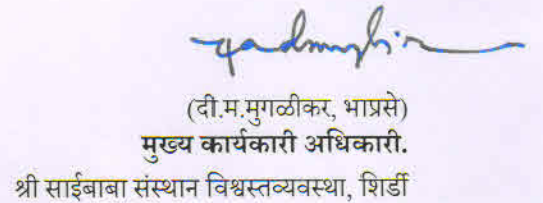 (दी.म.मुगळीकर, भाप्रसे)
मुख्य कार्यकारी अधिकारी.
श्री साईबाबा संस्थान विश्वस्तव्यवस्था, शिर्डी